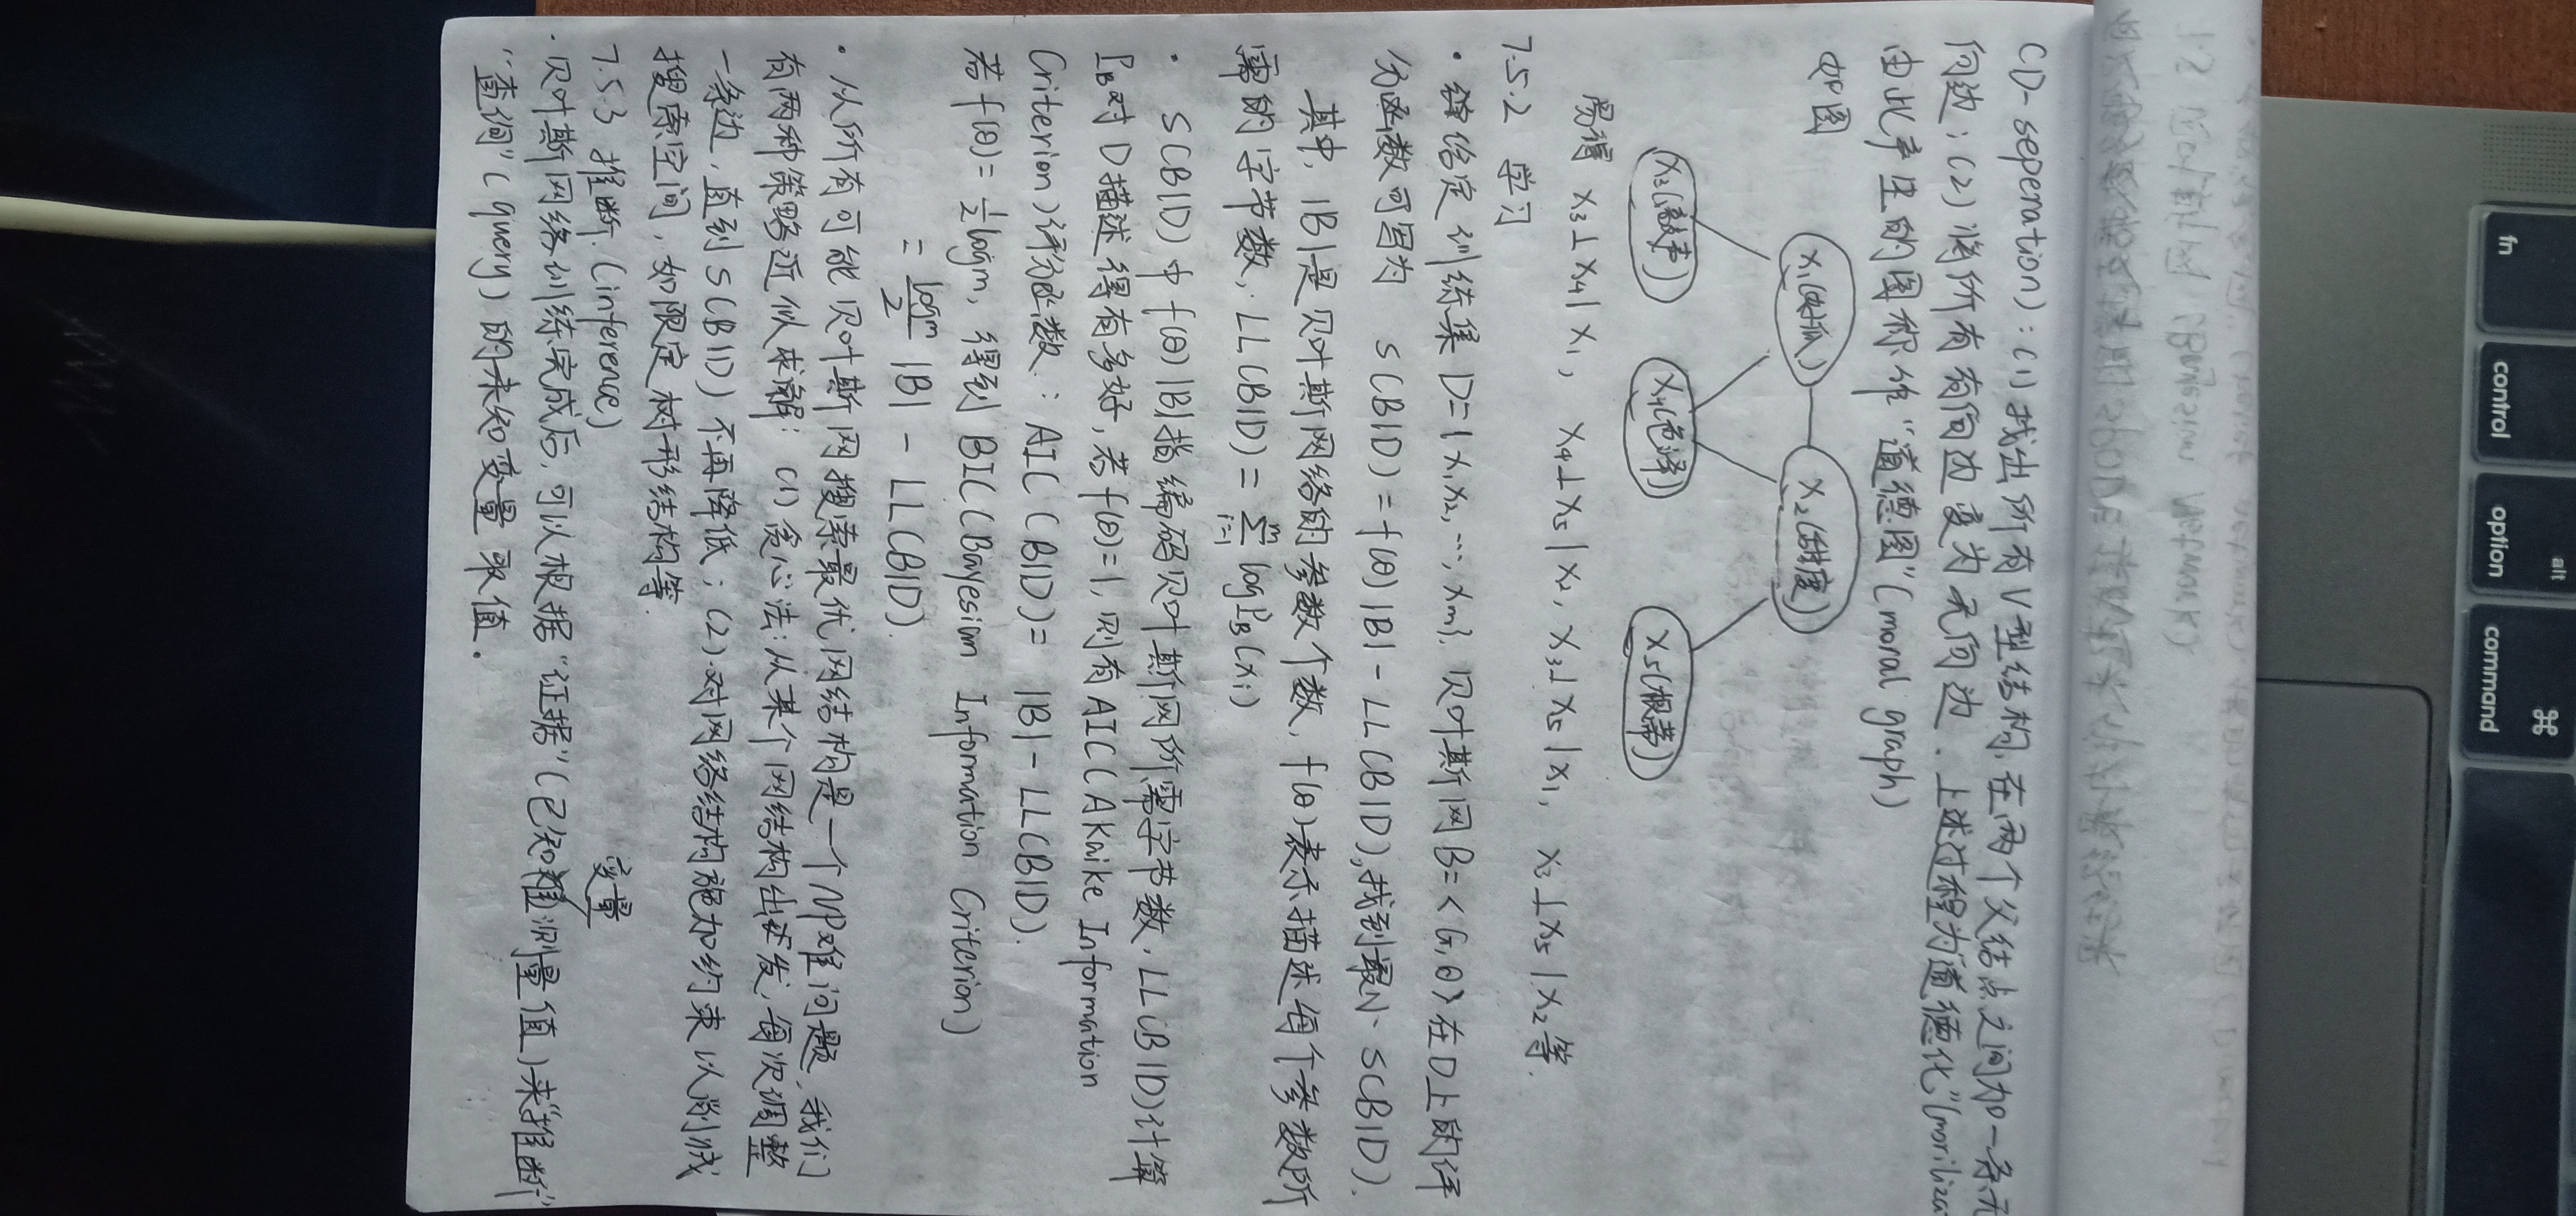 (D-seperation): (1) 找出所有V型结构, 在两个父结点之间加一条无
向边; (2) 将所有有向边变为无向边. 上述过程为道德化"(
由此产生的图称作"道德图"(moral graph)
如图
x1(好瓜) x2(甜度)
x3(敲声) x4(色泽) x5(根蒂)
易得 x3⊥x4|x1, x4⊥x5|x2, x3⊥x5|x1, x3⊥x5|x2等.
7.5.2 学习
· 给定训练集D={x1,x2,…,xm}. 贝叶斯网B=<G,θ>在D上的评
分函数可写为 S(B|D)=f(θ)|B|-LL(B|D), 找到最小S(B|D).
其中, |B|是贝叶斯网络的参数个数, f(θ)表示描述每个参数所
需的字节数, LL(B|D)=∑_{i=1}^{m} log P_B(xi)
· S(B|D)中f(θ)|B|指编码贝叶斯网所需字节数, LL(B|D)计算
P_B对D描述得有多好, 若f(θ)=1, 则有AIC(Akaike Information
Criterion)评分函数: AIC(B|D)= |B|-LL(B|D).
若f(θ)=½logm, 得到BIC(Bayesian Information Criterion)
= logm/2 |B| - LL(B|D).
· 从所有可能贝叶斯网搜索最优网结构是一个NP难问题, 我们
有两种策略近似求解: (1) 贪心法: 从某个网结构出发, 每次调整
一条边, 直到S(B|D)不再降低; (2) 对网络结构施加约束以削减
搜索空间, 如限定树形结构等.
7.5.3 推断. (inference)
变量
· 贝叶斯网络训练完成后, 可以根据"证据"(已知测量值)来"推断"
"查询"(query)的未知变量取值.
fn
control
option
alt
command
⌘